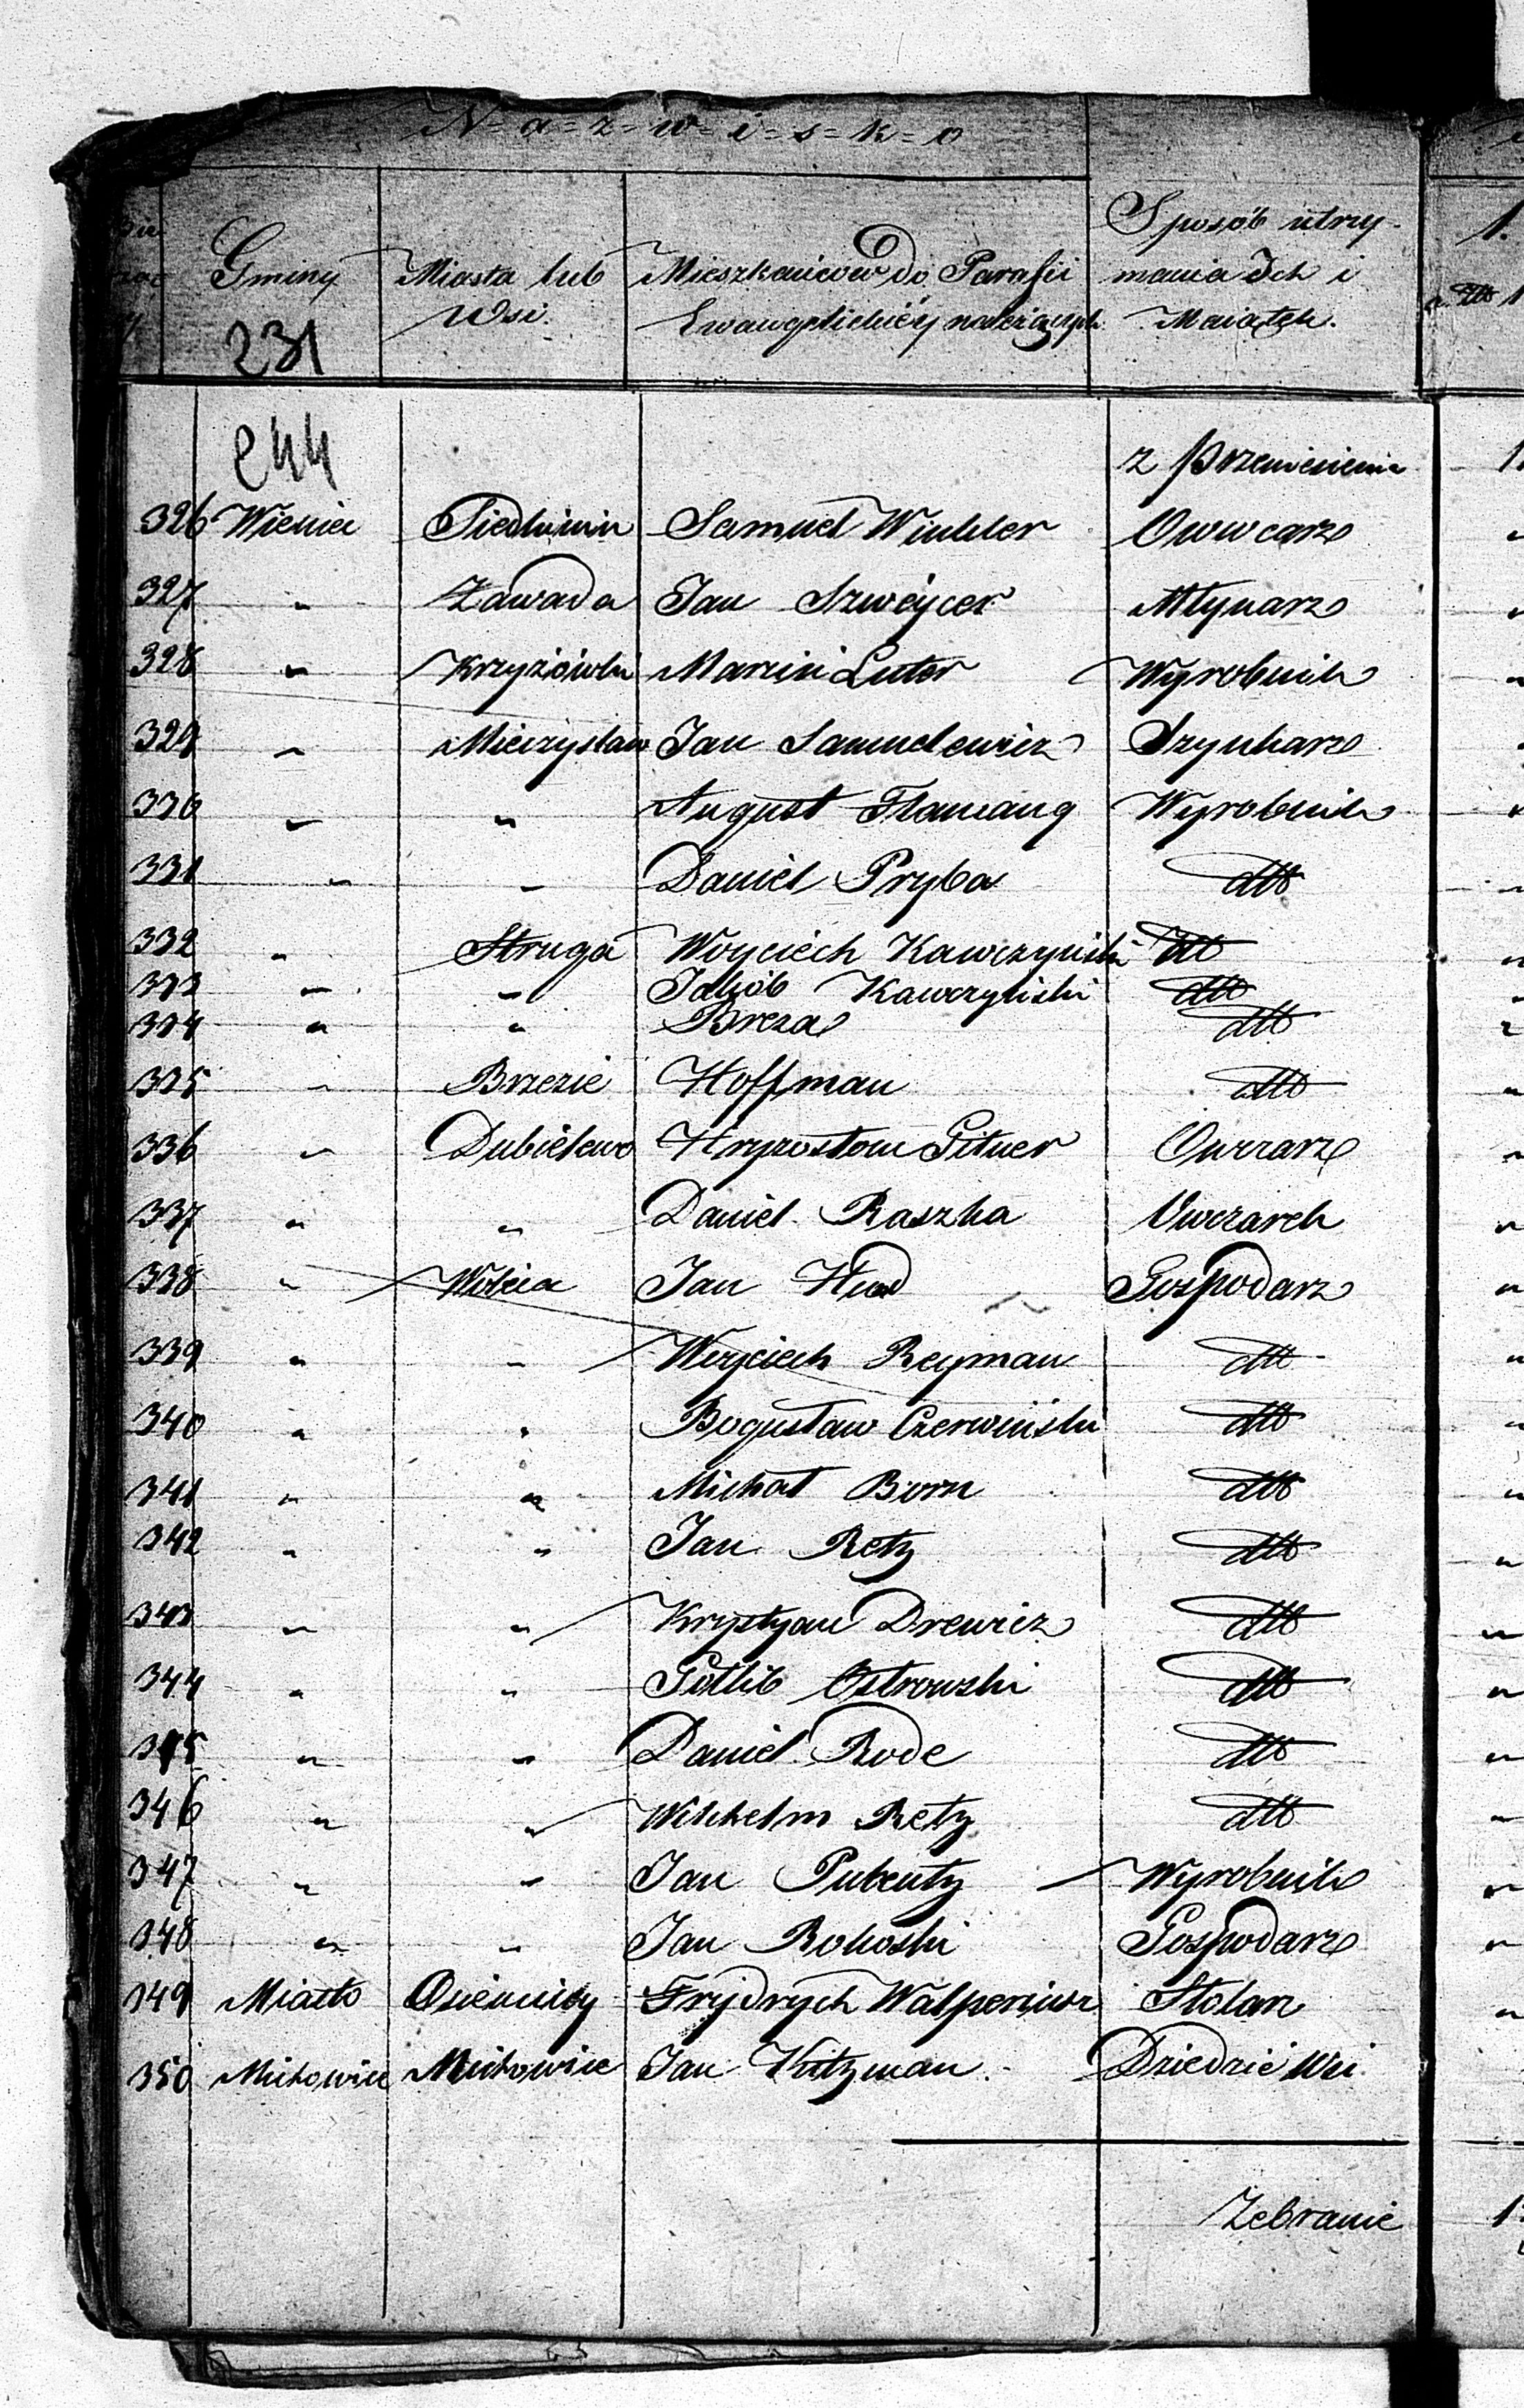 N=a=z=w=i=s=k=o
Gminy Miasta lub Wsi. Mieszkańców do Parafii Ewangelickiéy należących Sposób utrzymania Ich i Maiątek. 1.
231
244
z Przeniesienia
326 Wieniec Siedlimin Samuel Winkler Owwcarz
327 " Zawada Jan Szweycer Młynarz
328 " Krzyżówki Marcin Luter Wyrobnik
329 " Mieczysław Jan Samuelewicz Szynkarz
330 " " August Flamang Wyrobnik
331 " " Daniel Pryba dtto
332 " Struga Woyciech Kawczyński dtto
333 " " Jakób Kawczyński dtto
334 " " Breza dtto
335 " Brzezie Hoffman dtto
336 " Dubielewo Hryzostom Gitner Owczarz
337 " " Daniel Raszka Owczarek
338 " Wólica Jan Hud Gospodarz
339 " " Woyciech Reyman dtto
340 " " Bogusław Czerwiński dtto
341 " " Michał Born dtto
342 " " Jan Retz dtto
343 " " Krystyan Drewicz dtto
344 " " Gotlib Ostrowski dtto
345 " " Daniel Rode dtto
346 " " Wilhelm Retz dtto
347 " " Jan Pubentz Wyrobnik
348 " " Jan Rokoski Gospodarz
349 Miasto Osięciny Frydrych Stolarz
350 Jan Kitzman Dziedzic Wsi
Zebranie